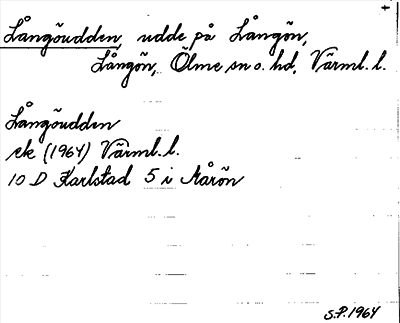 Långöudden, udde på Långön,
Långön, Ölme sn o. hd, Värml. l.
Långöudden
ek (1964) Värml. l.
10 D Karlstad 5 i Årön
S.P. 1964